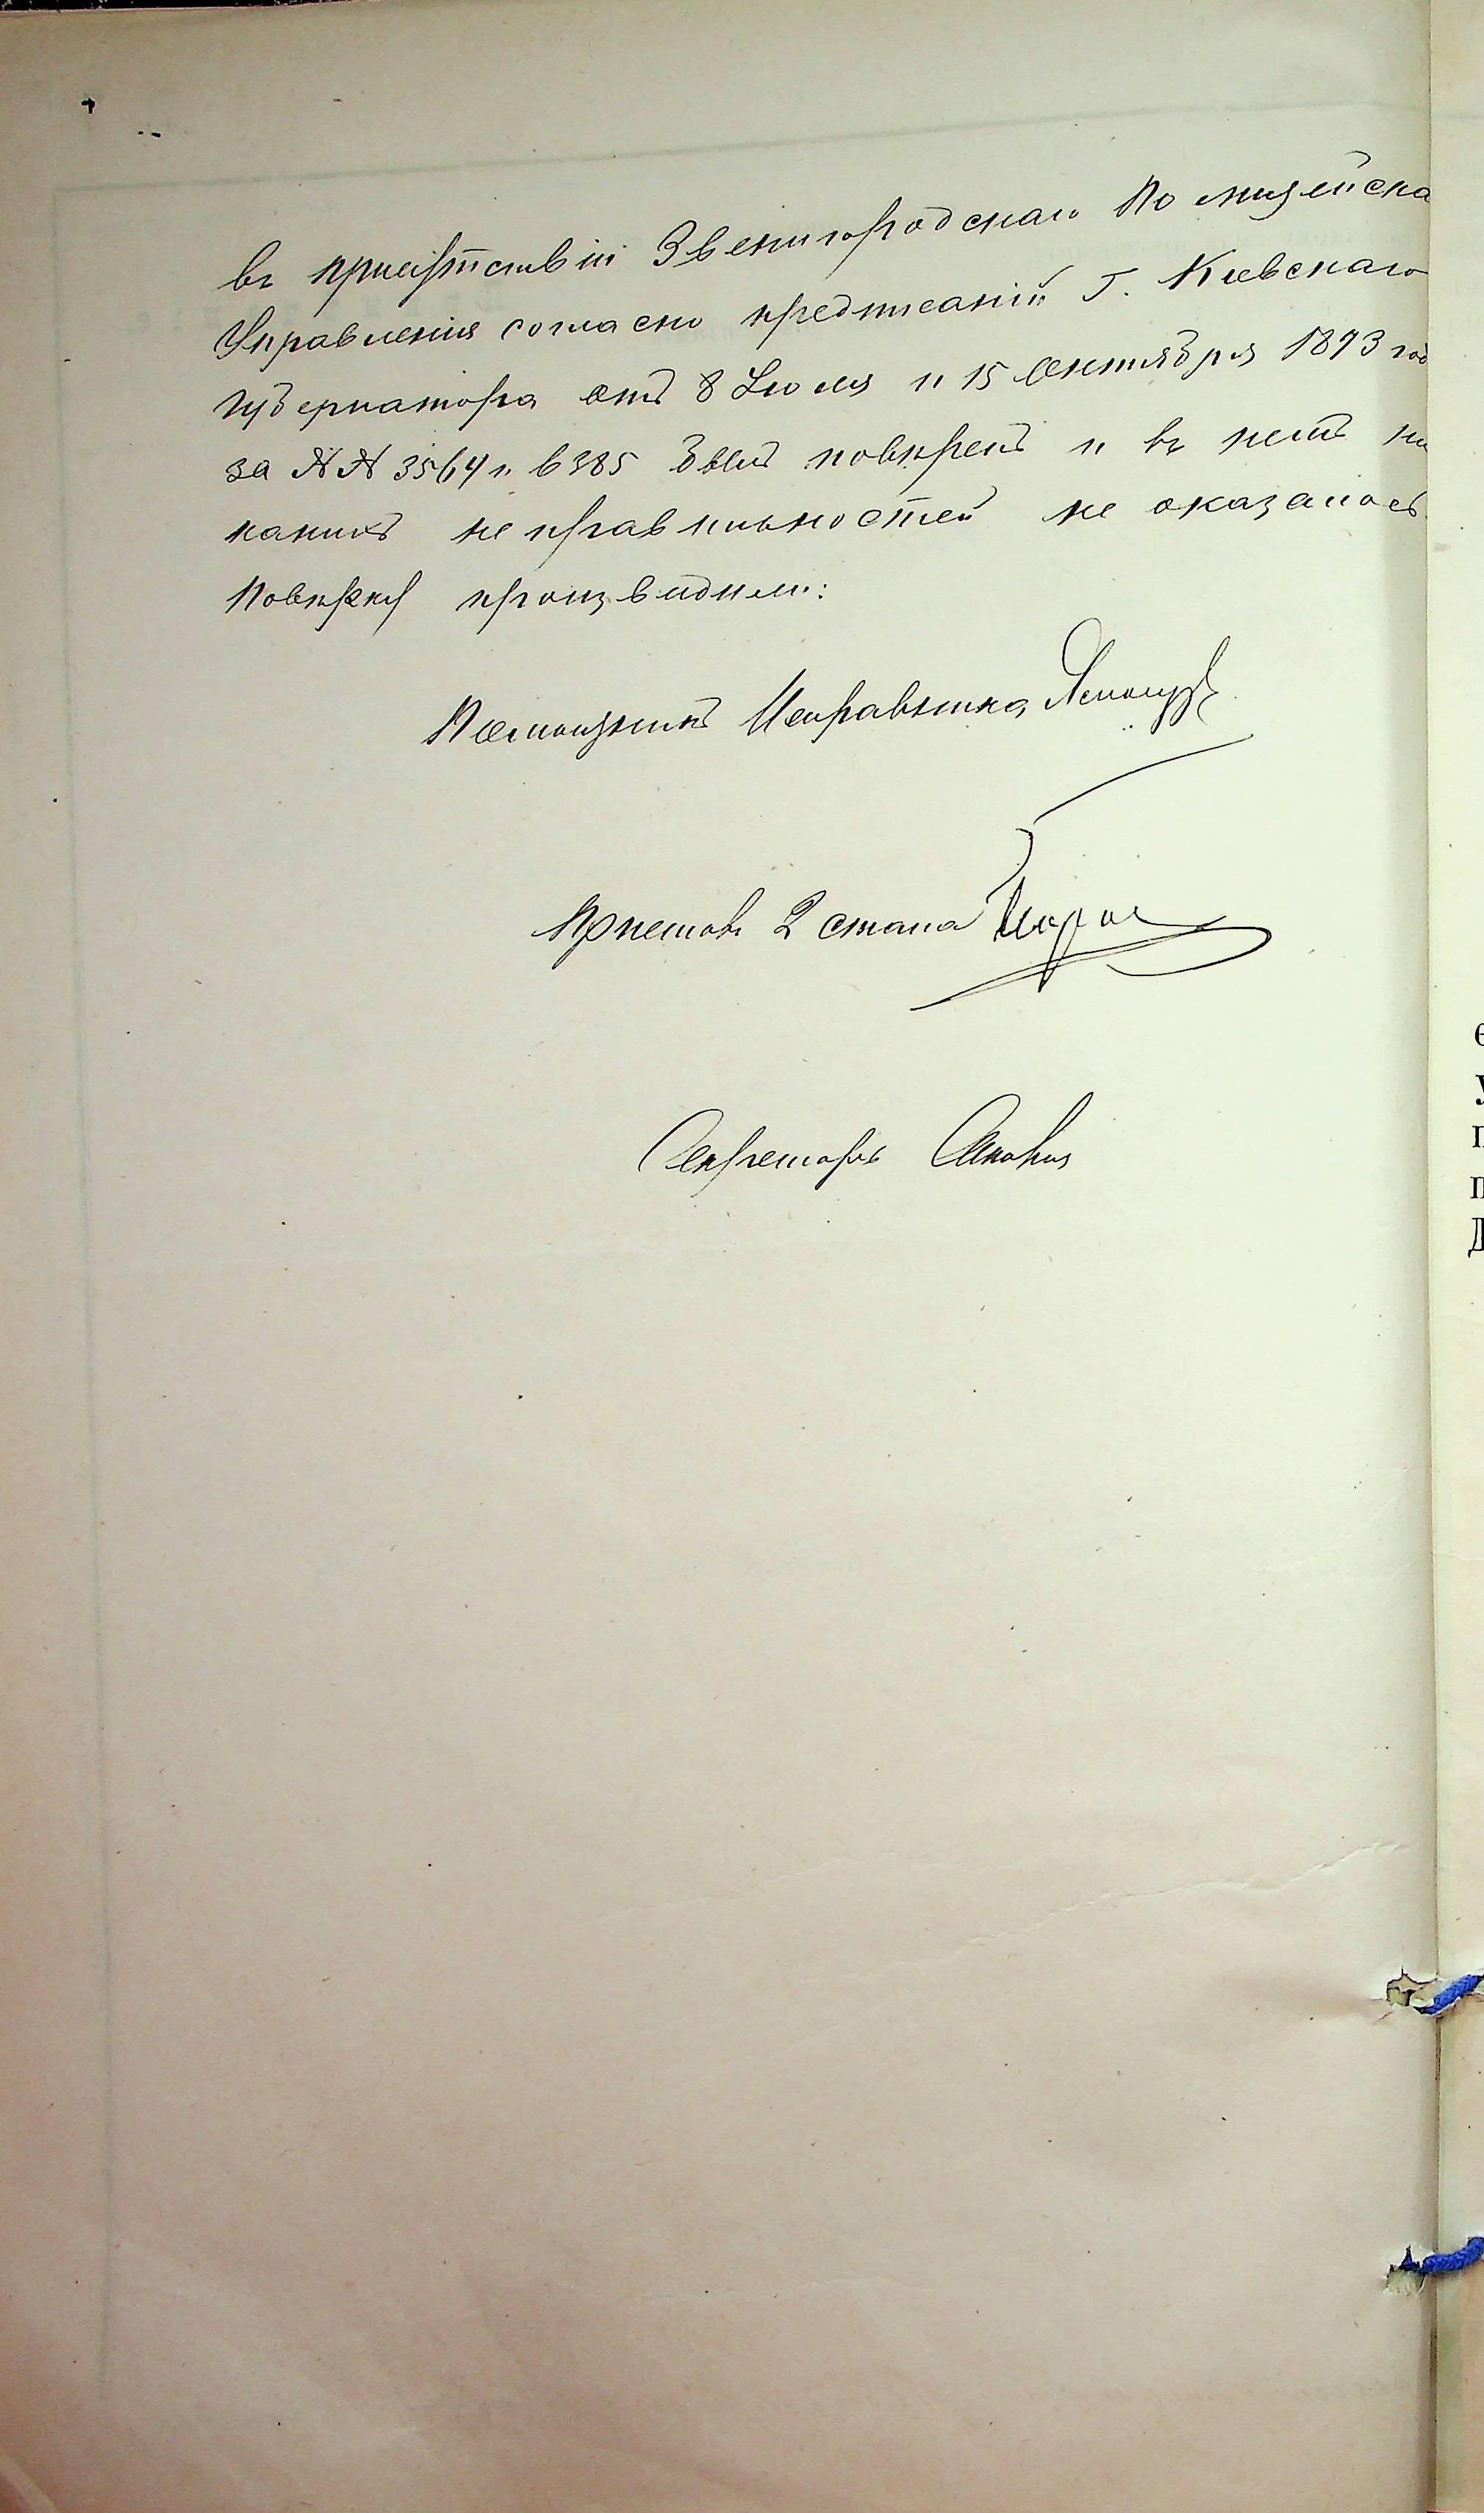 въ присутствіи Звенигородскаго Полицейска
Управленія согласно предписаній Г. Кіевскаго
Губернатора отъ 8 Іюля и 15 Октября 1893 год
за №№ 3564 и 6385 былъ повѣренъ и въ немъ ни
какихъ неправильностей не оказалось
Повѣрку производили:
Помощникъ Исправника
Приставъ 2 стана
Секретарь
е
у
п
п
Д